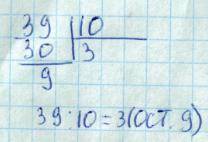 39 10
30 3
9
39:10=3(ост. 9)